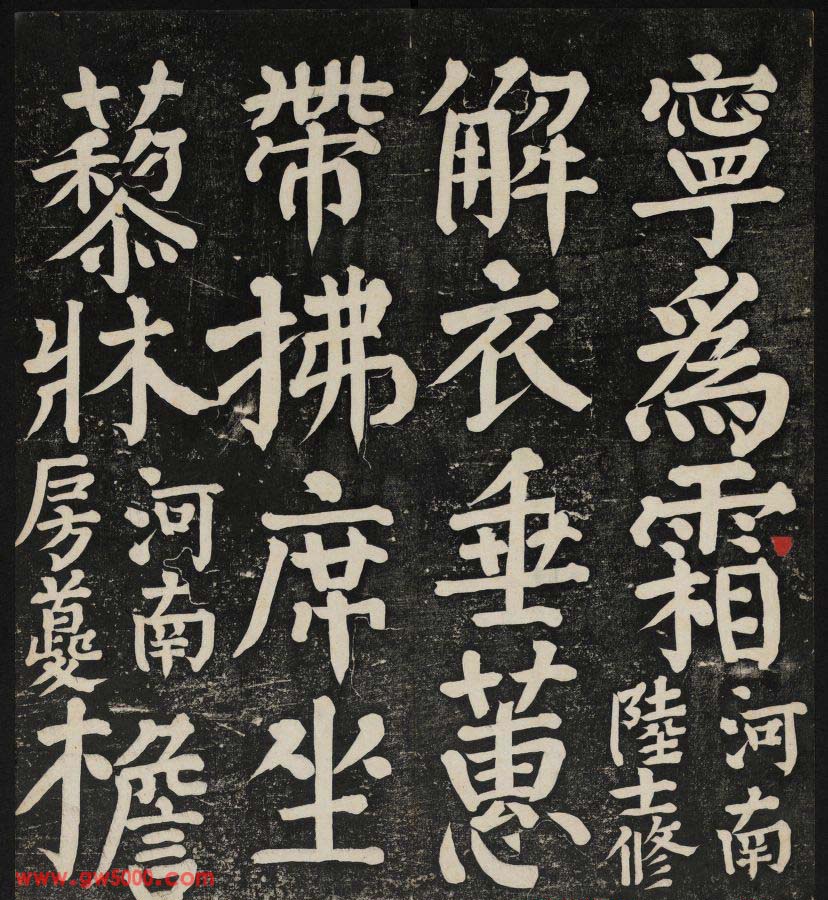 寧爲霜
河南
陸士修
解衣垂蕙
帶拂席坐
藜牀
河南
房夔
檐
www.gw5000.com